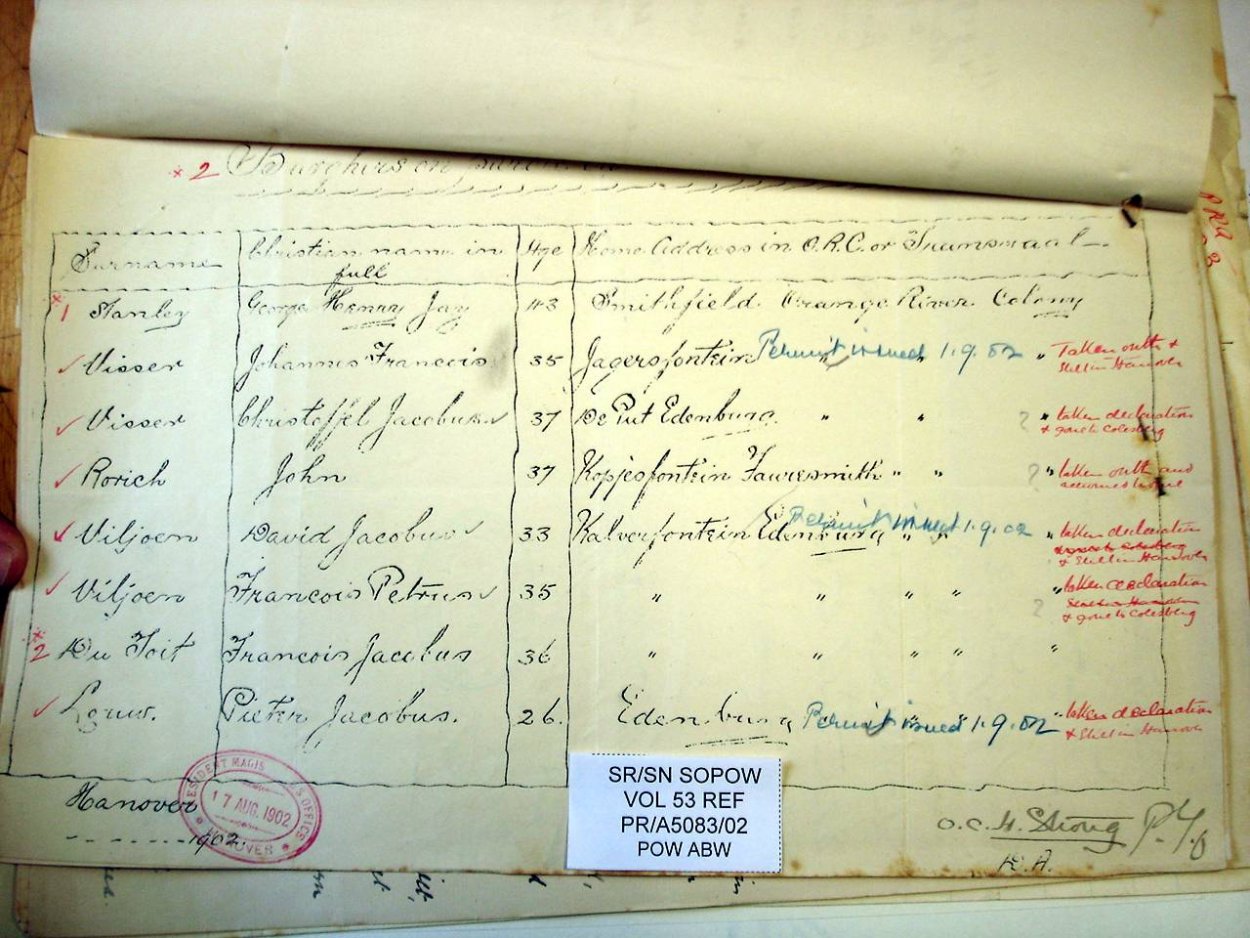 × 2 Burghers on
Surname Christian name in full Age Home Address in O.R.C. or Transvaal
× 1 Stanley George Henry Jay 43 Smithfield Orange River Colony
✓ Visser Johannes Francois 35 Jagersfontein Permit issued 1.9.02 " Taken oath & still in Hanover
✓ Visser Christoffel Jacobus ✓ 37 De Put Edenburg " " ? " taken declaration & gone to Colesberg
✓ Rorich John 37 Kopjesfontein Fauresmith " " ? " taken oath and
✓ Viljoen David Jacobus ✓ 33 Kalverfontein Edenburg " " Permit issued 1.9.02 " taken declaration & still in Hanover
✓ Viljoen Francois Petrus ✓ 35 " " " " ? " taken declaration & gone to Colesberg
× 2 Du Toit Francois Jacobus 36 " " " " "
✓ Louw. Pieter Jacobus. 26. Edenburg Permit issued 1.9.02 " taken declaration & still in Hanover
Hanover
1902.
RESIDENT MAGIS S OFFICE
17 AUG. 1902
O.C.H. Strong P.T.O
R.A.
SR/SN SOPOW
VOL 53 REF
PR/A5083/02
POW ABW